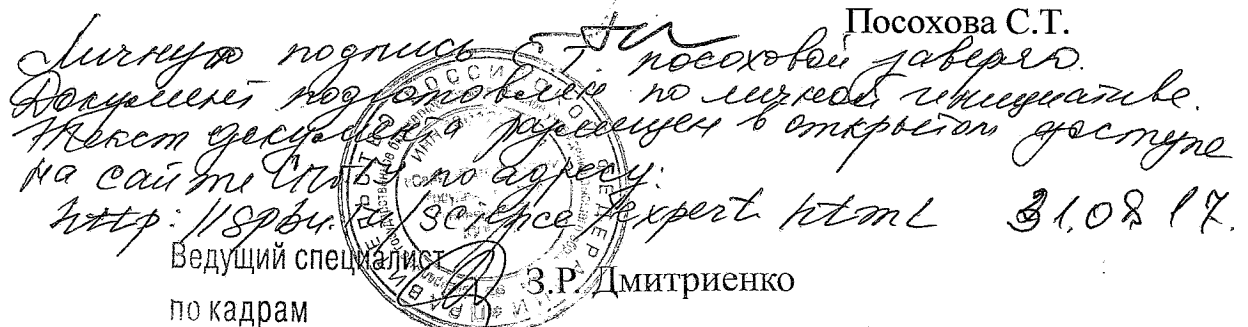 Посохова С.Т.
Личную подпись С.Т. Посоховой заверяю.
Документ подготовлен по личной инициативе.
Текст документа размещен в открытом доступе
на сайте СПбГУ по адресу:
http://spbu.ru/science/expert.html 31.08.17.
Ведущий специалист
по кадрам
З.Р. Дмитриенко